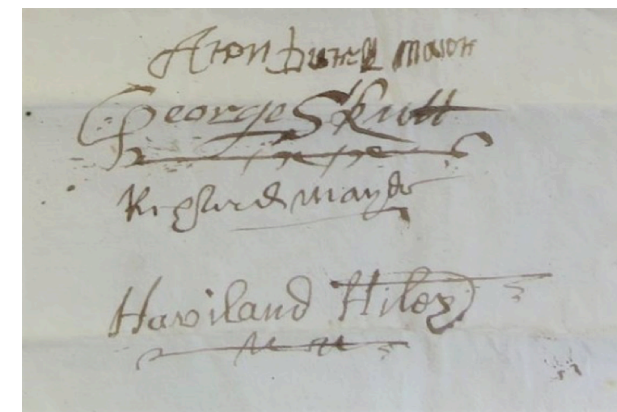 Aron Durell maior
George Skutt
Richard Mayde
Haviland Hiley